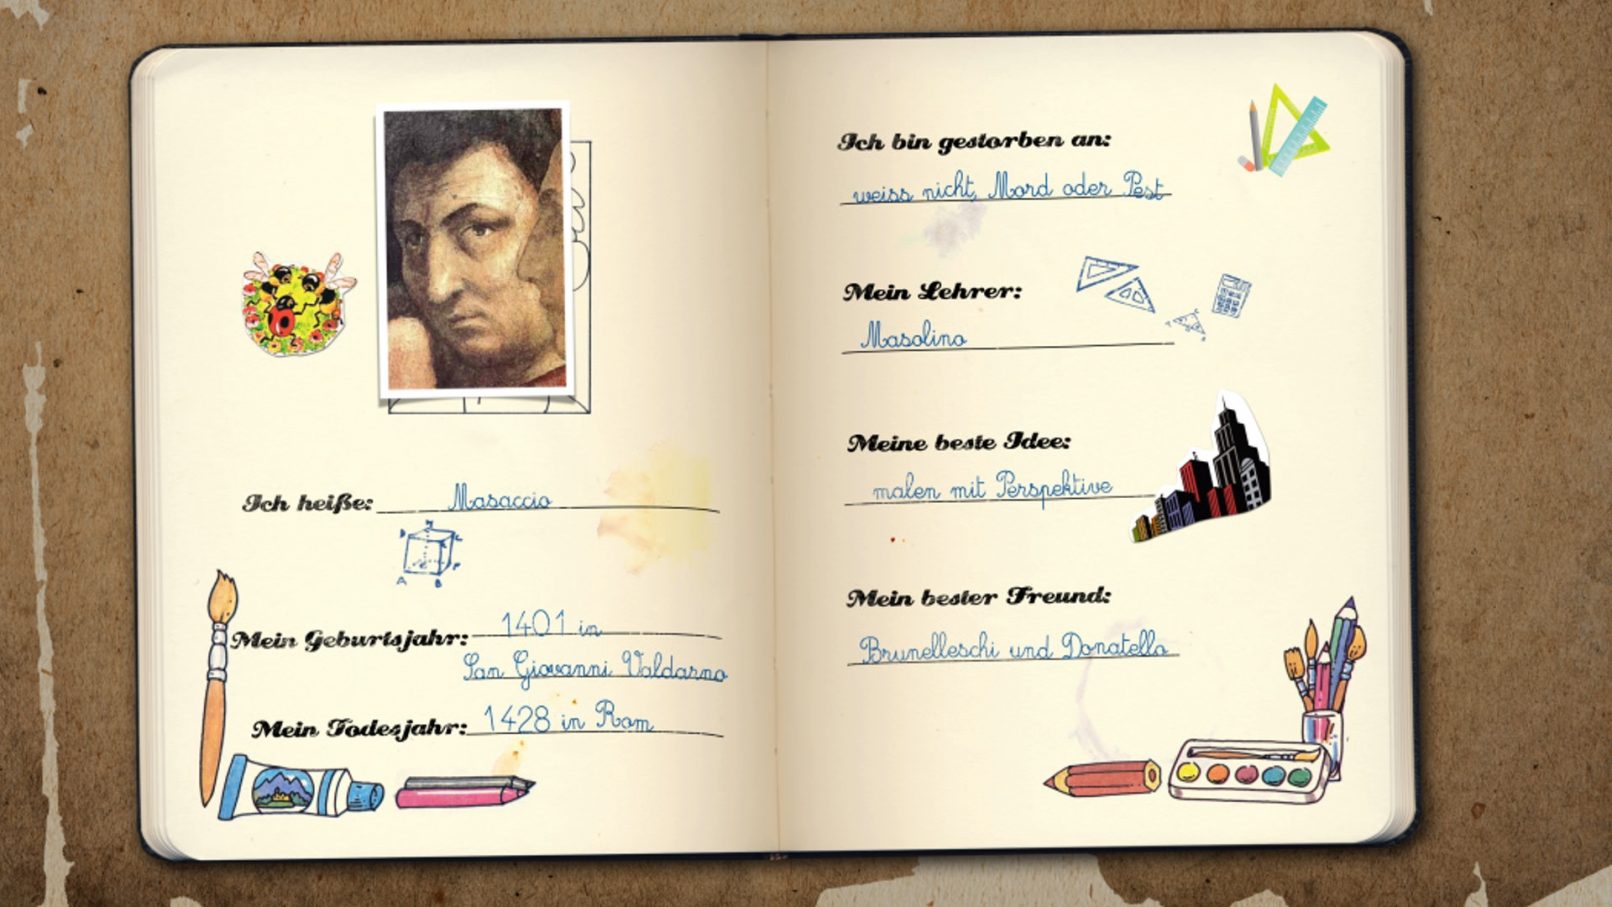 Ich heiße: Masaccio
Mein Geburtsjahr: 1401 in
San Giovanni Valdarno
Mein Todesjahr: 1428 in Rom
Ich bin gestorben an:
weiss nicht, Mord oder Pest
Mein Lehrer:
Masolino
Meine beste Idee:
malen mit Perspektive
Mein bester Freund:
Brunelleschi und Donatello